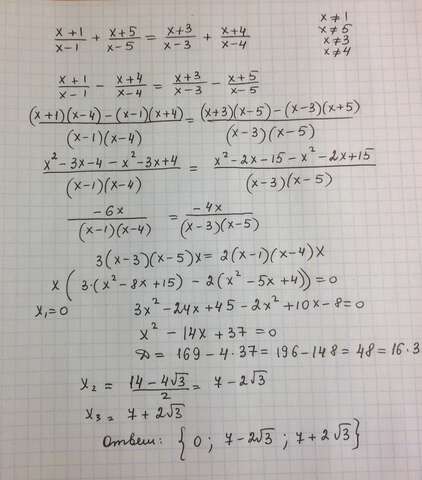 (x+1)/(x-1) + (x+5)/(x-5) = (x+3)/(x-3) + (x+4)/(x-4)
x≠1
x≠5
x≠3
x≠4
(x+1)/(x-1) - (x+4)/(x-4) = (x+3)/(x-3) - (x+5)/(x-5)
((x+1)(x-4)-(x-1)(x+4))/((x-1)(x-4)) = ((x+3)(x-5)-(x-3)(x+5))/((x-3)(x-5))
(x²-3x-4-x²-3x+4)/((x-1)(x-4)) = (x²-2x-15-x²-2x+15)/((x-3)(x-5))
(-6x)/((x-1)(x-4)) = (-4x)/((x-3)(x-5))
3(x-3)(x-5)x = 2(x-1)(x-4)x
x(3·(x²-8x+15) - 2(x²-5x+4)) = 0
x₁=0 3x²-24x+45-2x²+10x-8=0
x²-14x+37=0
D = 169-4·37 = 196-148 = 48 = 16·3
x₂ = (14-4√3)/2 = 7-2√3
x₃ = 7+2√3
Ответ: {0; 7-2√3; 7+2√3}